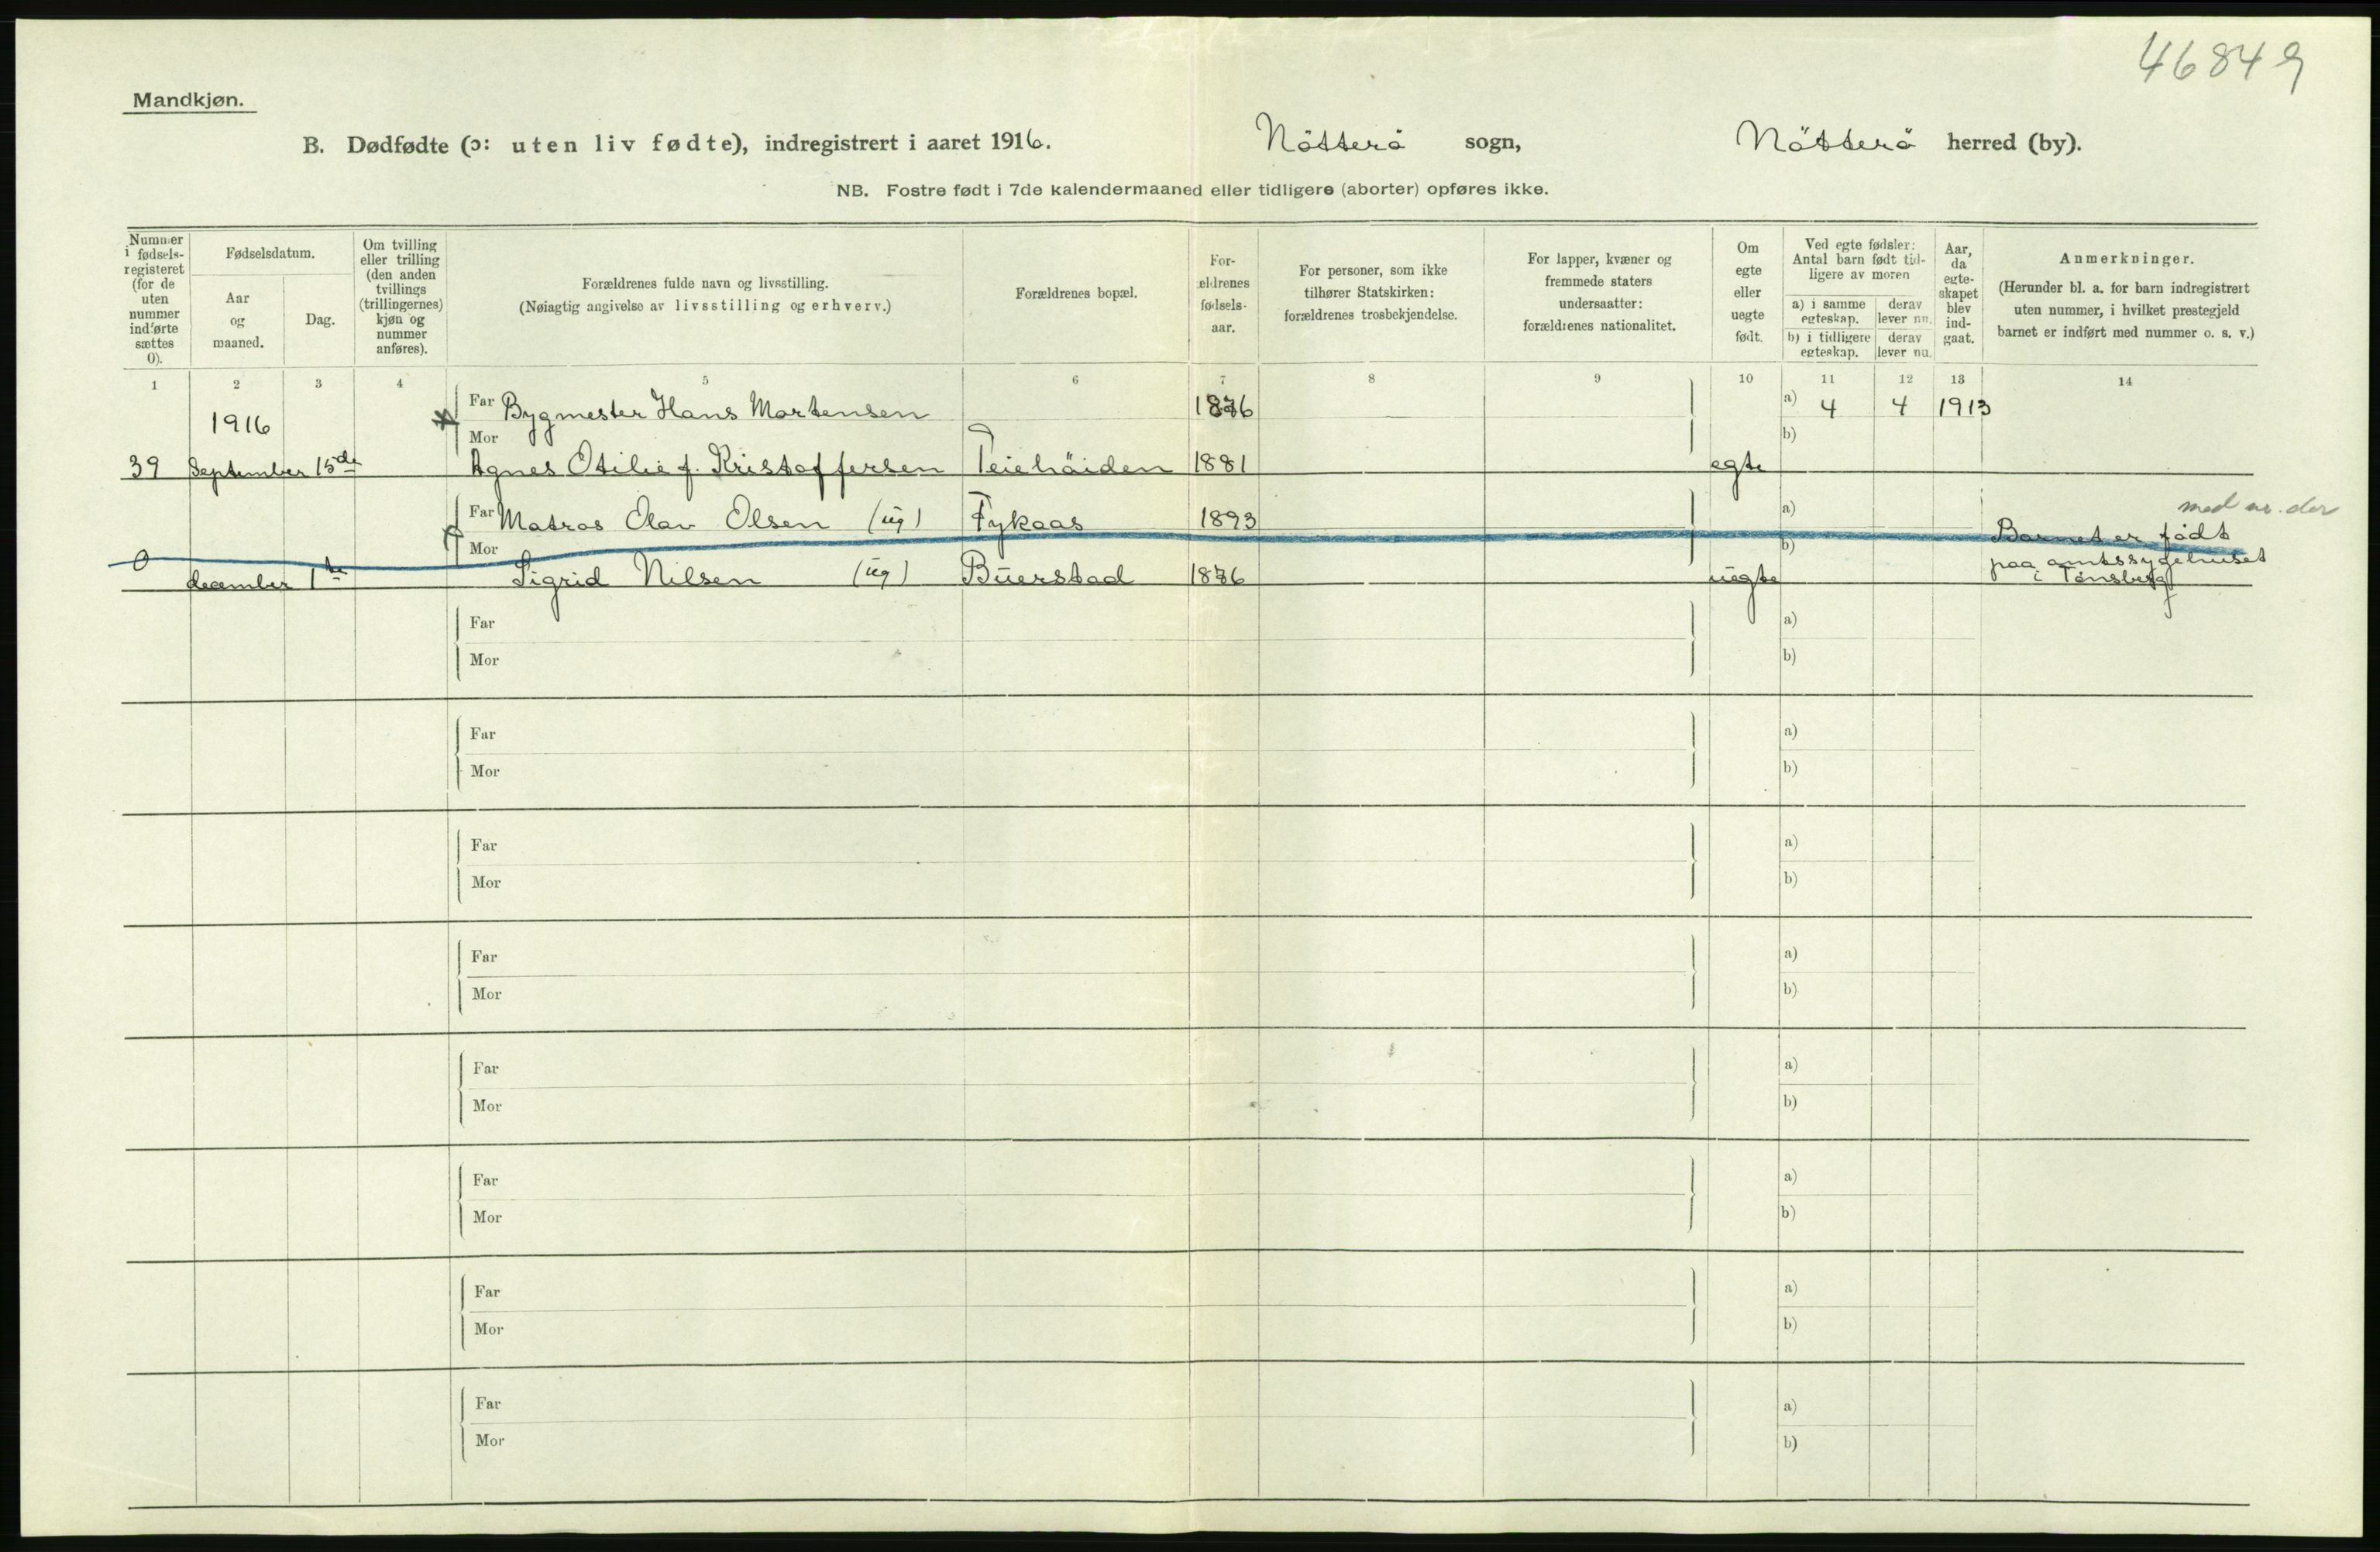 46849
Mandkjøn.
B. Dødfødte (ɔ: uten liv fødte), indregistrert i aaret 1916. Nötterö sogn, Nötterö herred (by).
NB. Fostre født i 7de kalendermaaned eller tidligere (aborter) opføres ikke.
Nummer i fødsels-registeret (for de uten nummer indførte sættes 0).
Fødselsdatum.
Aar og maaned.
Dag.
Om tvilling eller trilling (den anden tvillings (trillingernes) kjøn og nummer anføres).
Forældrenes fulde navn og livsstilling.
(Nøiagtig angivelse av livsstilling og erhverv.)
Forældrenes bopæl.
For-ældrenes fødsels-aar.
For personer, som ikke tilhører Statskirken: forældrenes trosbekjendelse.
For lapper, kvæner og fremmede staters undersaatter: forældrenes nationalitet.
Om egte eller uegte født.
Ved egte fødsler: Antal barn født tid-ligere av moren
a) i samme egteskap.
derav lever nu.
b) i tidligere egteskap.
derav lever nu.
Aar, da egte-skapet blev ind-gaat.
Anmerkninger.
(Herunder bl. a. for barn indregistrert uten nummer, i hvilket prestegjeld barnet er indført med nummer o. s. v.)
1 2 3 4 5 6 7 8 9 10 11 12 13 14
Far Bygmester Hans Martensen 1876 a) 4 4 1913
1916
Mor b)
39 September 15de Agnes Otilie f. Kristoffersen Teiehöiden 1881 egte
med nr. der
Far Matros Olav Olsen (ug) Tykaas 1893 a)
Barnet er födt
Mor b)
0 december 1te Sigrid Nilsen (ug) Buerstad 1876 uegte
paa amtssygehuset
i Tönsberg
Far a)
Mor b)
Far a)
Mor b)
Far a)
Mor b)
Far a)
Mor b)
Far a)
Mor b)
Far a)
Mor b)
Far a)
Mor b)
Far a)
Mor b)